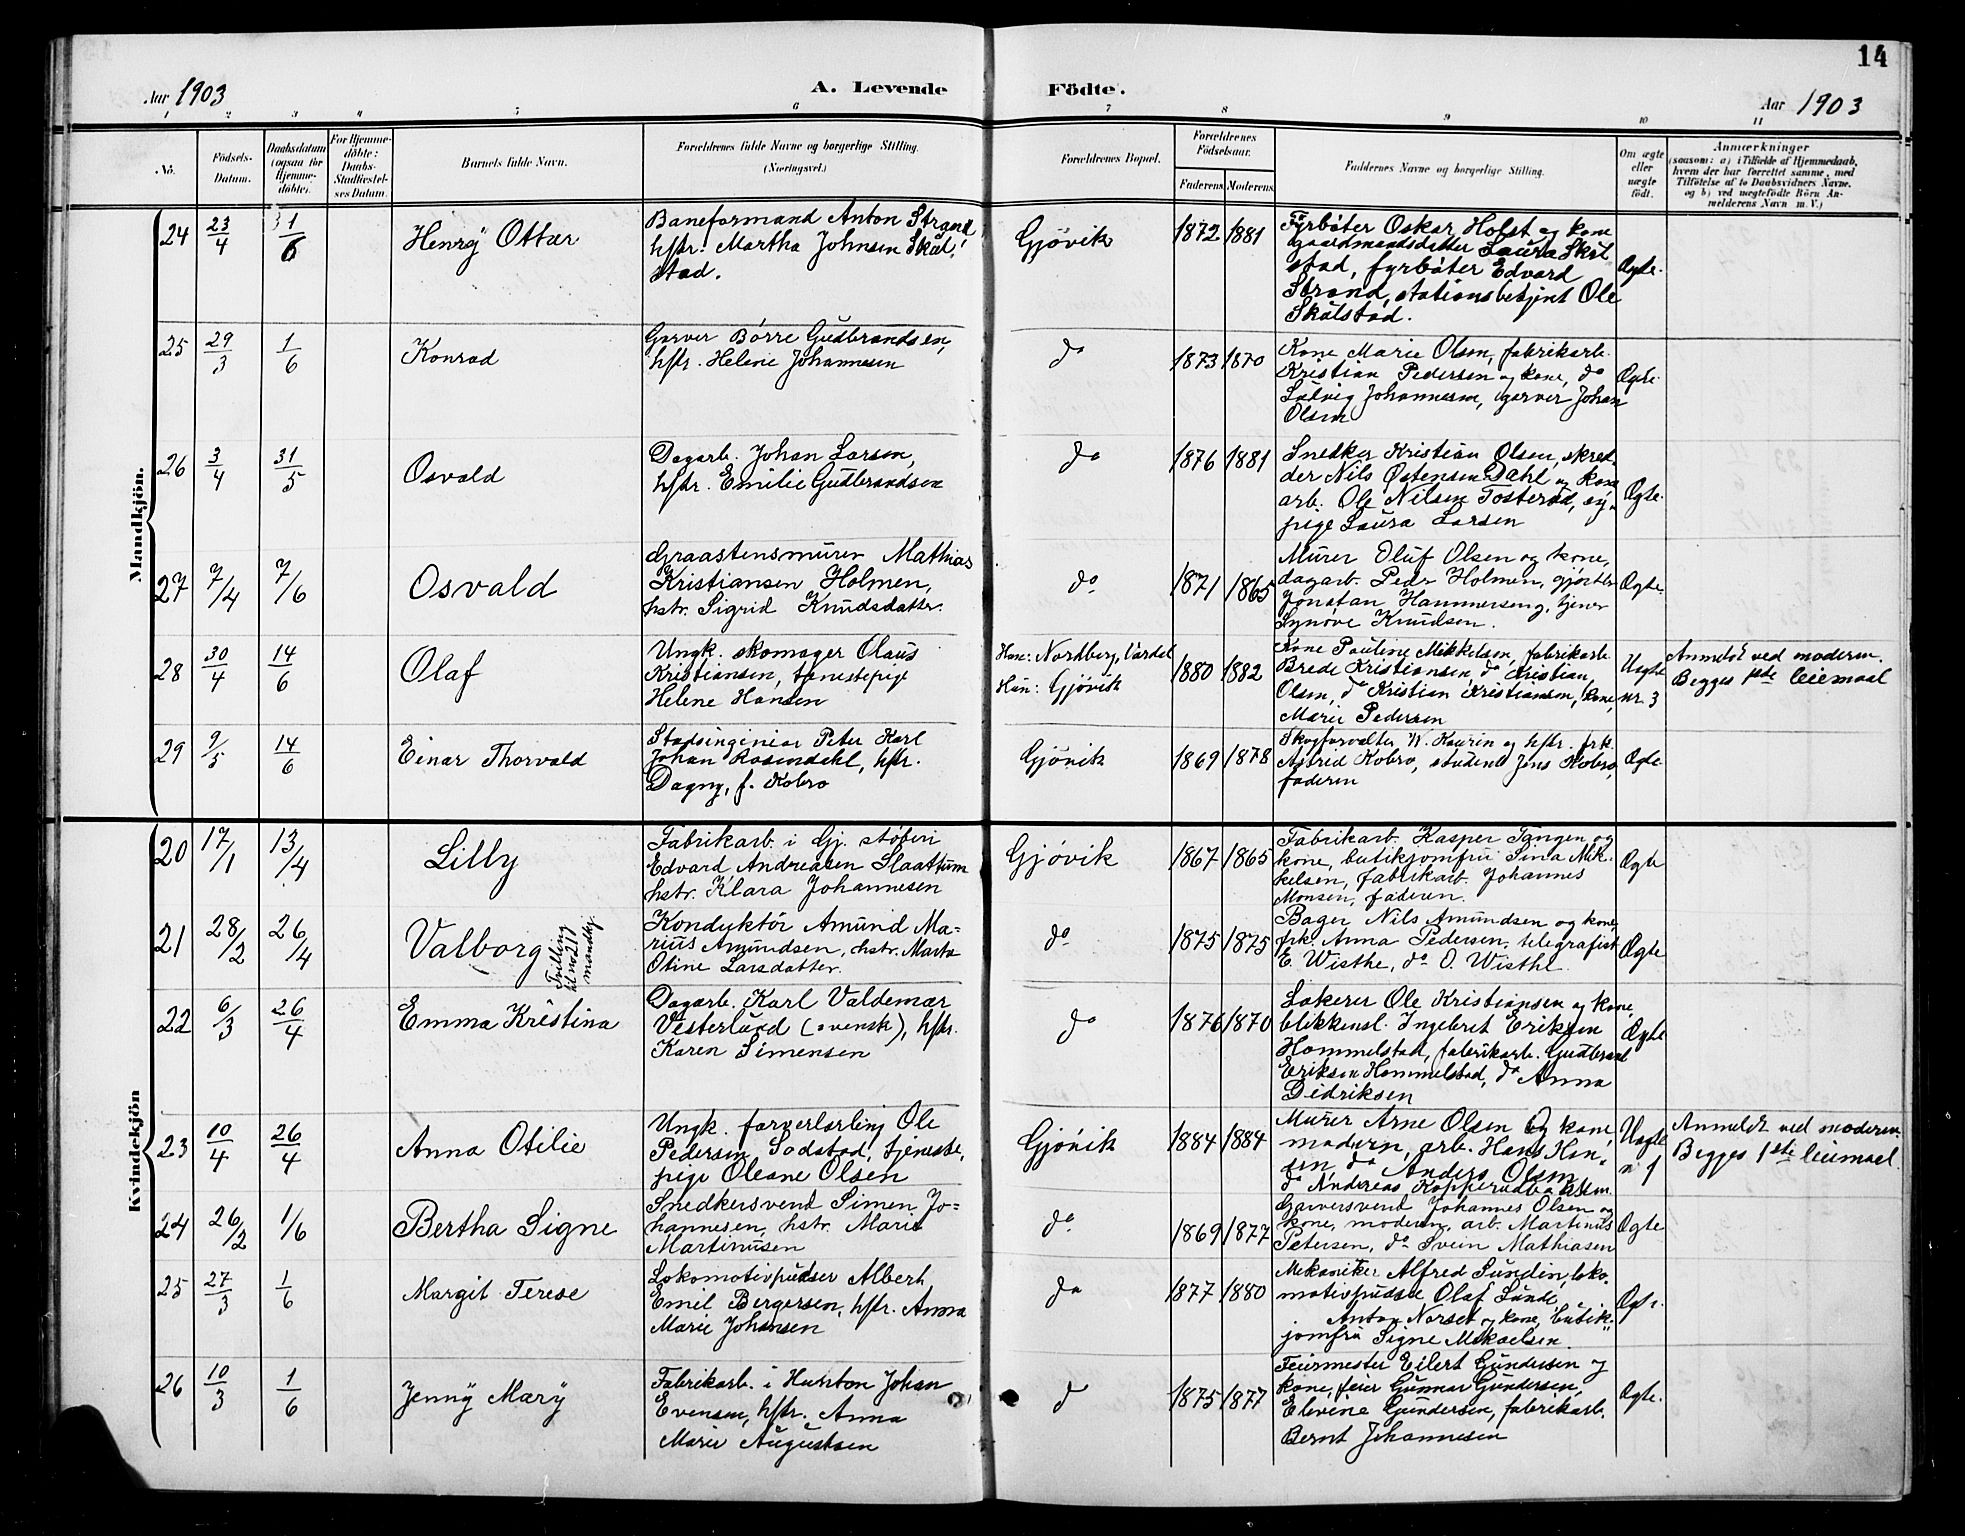 14
Aar 1903
A. Levende Födte.
Aar 1903
1 2 3 4 5 6 7 8 9 10 11
No.
Födsels-Datum.
Daabsdatum (ogsaa for Hjemme-döbte).
For Hjemme-döbte: Daabs-Stadfæstel-ses Datum.
Barnets fulde Navn.
Forældrenes fulde Navne og borgerlige Stilling. (Næringsvei.)
Forældrenes Bopæl.
Forældrenes Födselsaar.
Faderens. Moderens.
Faddernes Navne og borgerlige Stilling.
Om ægte eller uægte født.
Anmærkninger
(saasom: a) i Tilfælde af Hjemmedaab, hvem der har forrettet samme, med Tilföielse af to Daabsvidners Navne, og b) ved uægtefödte Börn An-melderens Navn m. V.)
Mandkjön.
24 23/4 31/6 Henry Ottar
Baneformand Anton Strand
hstr. Martha Johnsen Skul-
stad.
Gjøvik 1872 1881
Fyrbøter Oskar Holst og kone
gaardmandsdatter Laura Skul
stad, fyrbøter Edvard
Strand, stationsbetjent Ole
Skulstad.
Ægte.
25 29/3 1/6 Konrad
Garver Børre Gudbrandsen,
hstr. Helene Johannesen
do 1873 1870
Kone Marie Olsen, fabrikarb.
Kristian Pedersen og kone, do
Ludvig Johannesen, garver Johan
Olsen
Ægte.
26 3/4 31/5 Osvald
Dagarb. Johan Larsen,
hstr. Emilie Gudbrandsen
do 1876 1881
Snedker Kristian Olsen, skræd-
der Nils Østensen Dahl og kone
arb. Ole Nilsen Tosterud, sy-
pige Laura Larsen
Ægte.
27 7/4 7/6 Osvald
Graastensmurer Mathias
Kristiansen Holmen,
hstr. Sigrid Knudsdatter.
do. 1871 1865
Murer Oluf Olsen og kone,
dagarb. Peder Holmen, gjørtler
Jonatan Hammerseng, tjener
Synøve Knudsen.
Ægte.
28 30/4 14/6 Olaf
Ungk. skomager Olaus
Kristiansen, tjenestepige
Helene Hansen
Han: Nordberg, Vardal
Hun: Gjøvik
1880 1882
Kone Pauline Mikkelsen, fabrikarb.
Brede Kristiansen, do Kristian
Olsen, do Kristian Kristiansen, kone
Marie Pedersen
Uægte nr. 3
Anmeldt ved moderen.
Begges 1ste leiemaal
29 9/5 14/6 Einar Thorvald
Stadsingeniør Peter Karl
Johan Rosendahl, hstr.
Dagny, f. Kobro
Gjøvik 1869 1878
Skogforvalter W. Kaurin og hstr. frk.
Astrid Kobro, student Jens Kobro,
faderen
Ægte
Kvindekjön
20 17/1 13/4 Lilly
Fabrikarb. i Gj. støberi
Edvard Andreasen Slaattum
hstr. Klara Johannesen
Gjøvik 1867 1865
Fabrikarb. Kasper Tangen og
kone, butikjomfru Sina Mik-
kelsen, fabrikarb. Johannes
Monsen, faderen.
Ægte
21 28/2 26/4 Valborg
Tvilling
til no 21
mandkj.
Konduktør Amund Ma-
rius Amundsen, hstr. Marta
Otine Larsdatter.
do. 1875 1875
Bager Nils Amundsen og kone,
frk. Anna Pedersen, telegrafist
E. Wisthe, do O. Wisthe.
Ægte
22 6/3 26/4 Emma Kristina
Dagarb. Karl Valdemar
Vesterlund (svensk), hstr.
Karen Simensen
do 1876 1870
Lakerer Ole Kristiansen og kone,
blikkensl. Ingebret Eriksen
Hommelstad, fabrikarb. Gudbrand
Eriksen Hommelstad, do Anna
Didriksen
Ægte
23 10/4 26/4 Anna Otilie
Ungk. farverlærling Ole
Pedersen Sodstad, tjeneste-
pige Oleane Olsen
Gjøvik 1884 1884
Murer Arne Olsen og kone,
moderen, arb. Hans Han-
sen, do Anders Olsen
do Andreas Kopperud
Uægte n 1
Anmeldt ved moderen.
Begges 1ste leiemaal
24 26/2 1/6 Bertha Signe
Snedkersvend Simen Jo-
hannesen, hstr. Marie
Martinusen
do. 1869 1877
Garversvend Johannes Olsen og
kone, moderen, arb. Martinus
Petersen, do Svein Mathiasen
Ægte
25 27/3 1/6 Margit Terese
Lokomotivpudser Albert
Emil Bergersen, hstr. Anna
Marie Johansen
do 1877 1880
Mekaniker Alfred Sundin, loko-
motivpudser Olaf Lunde
Anton Norset og kone, butik-
jomfru Signe Mikaelsen
Ægte.
26 10/3 1/6 Jenny Mary
Fabrikarb. i Hunton Johan
Evensen, hstr. Anna
Marie Augustsen
d 1875 1877
Feiermester Eilert Gundersen og
kone, feier Gunnar Gundersen,
Elevine Gundersen, fabrikarb.
Bernt Johannesen
Ægte.